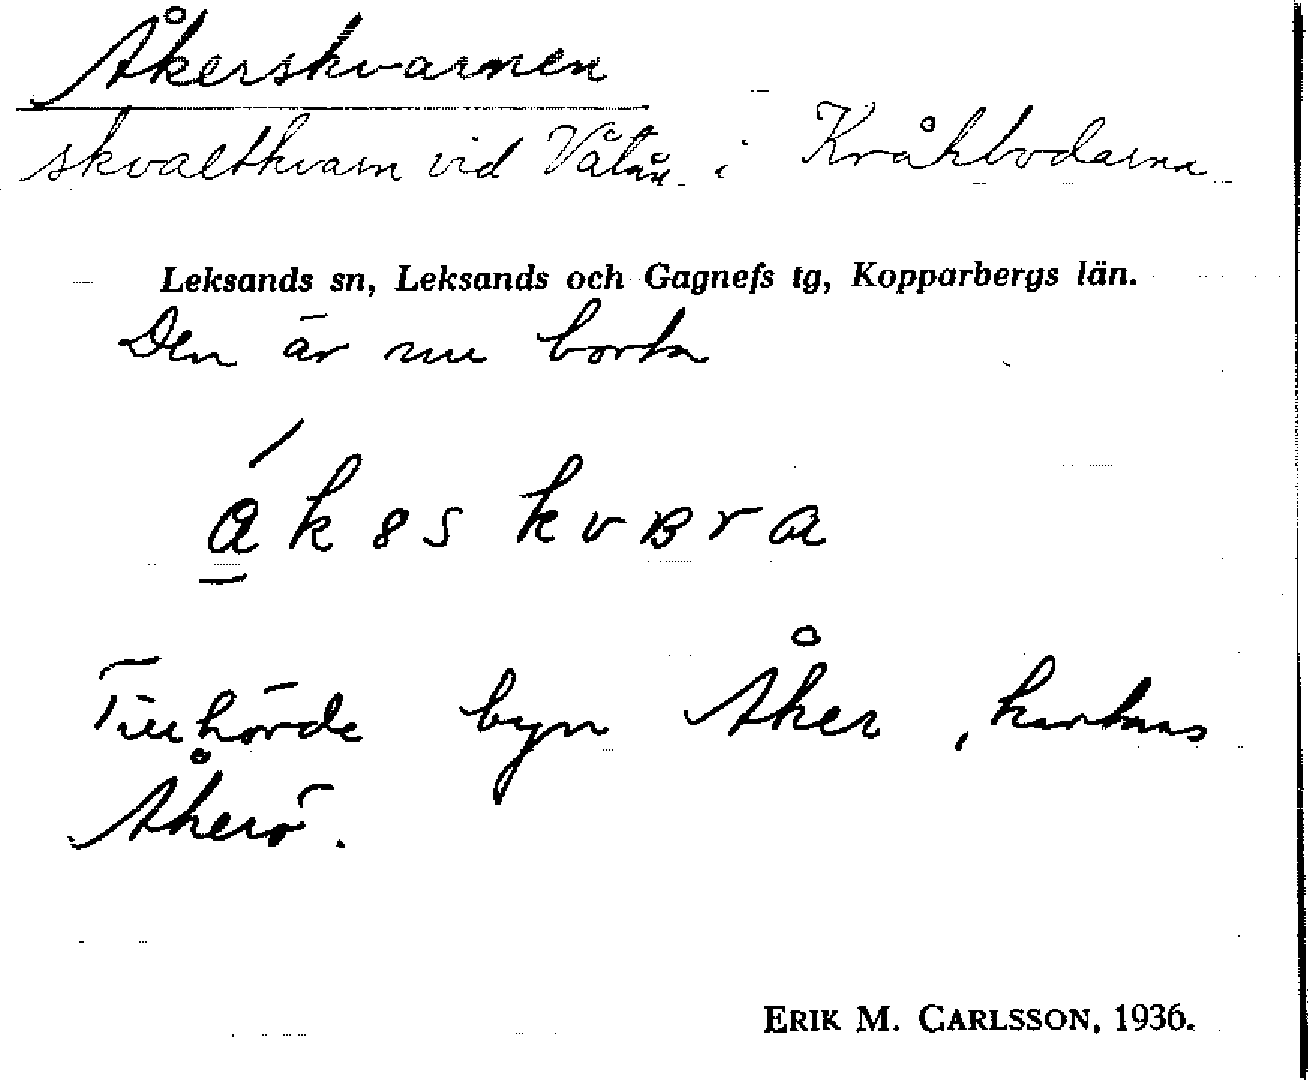 Åkerskvarnen
skvaltkvarn vid Våtån i Kråkbodarna
Leksands sn, Leksands och Gagnefs tg, Kopparbergs län.
Den är nu borta
Tillhörde byn Åker, kartans
Åkerö.
ERIK M. CARLSSON, 1936.